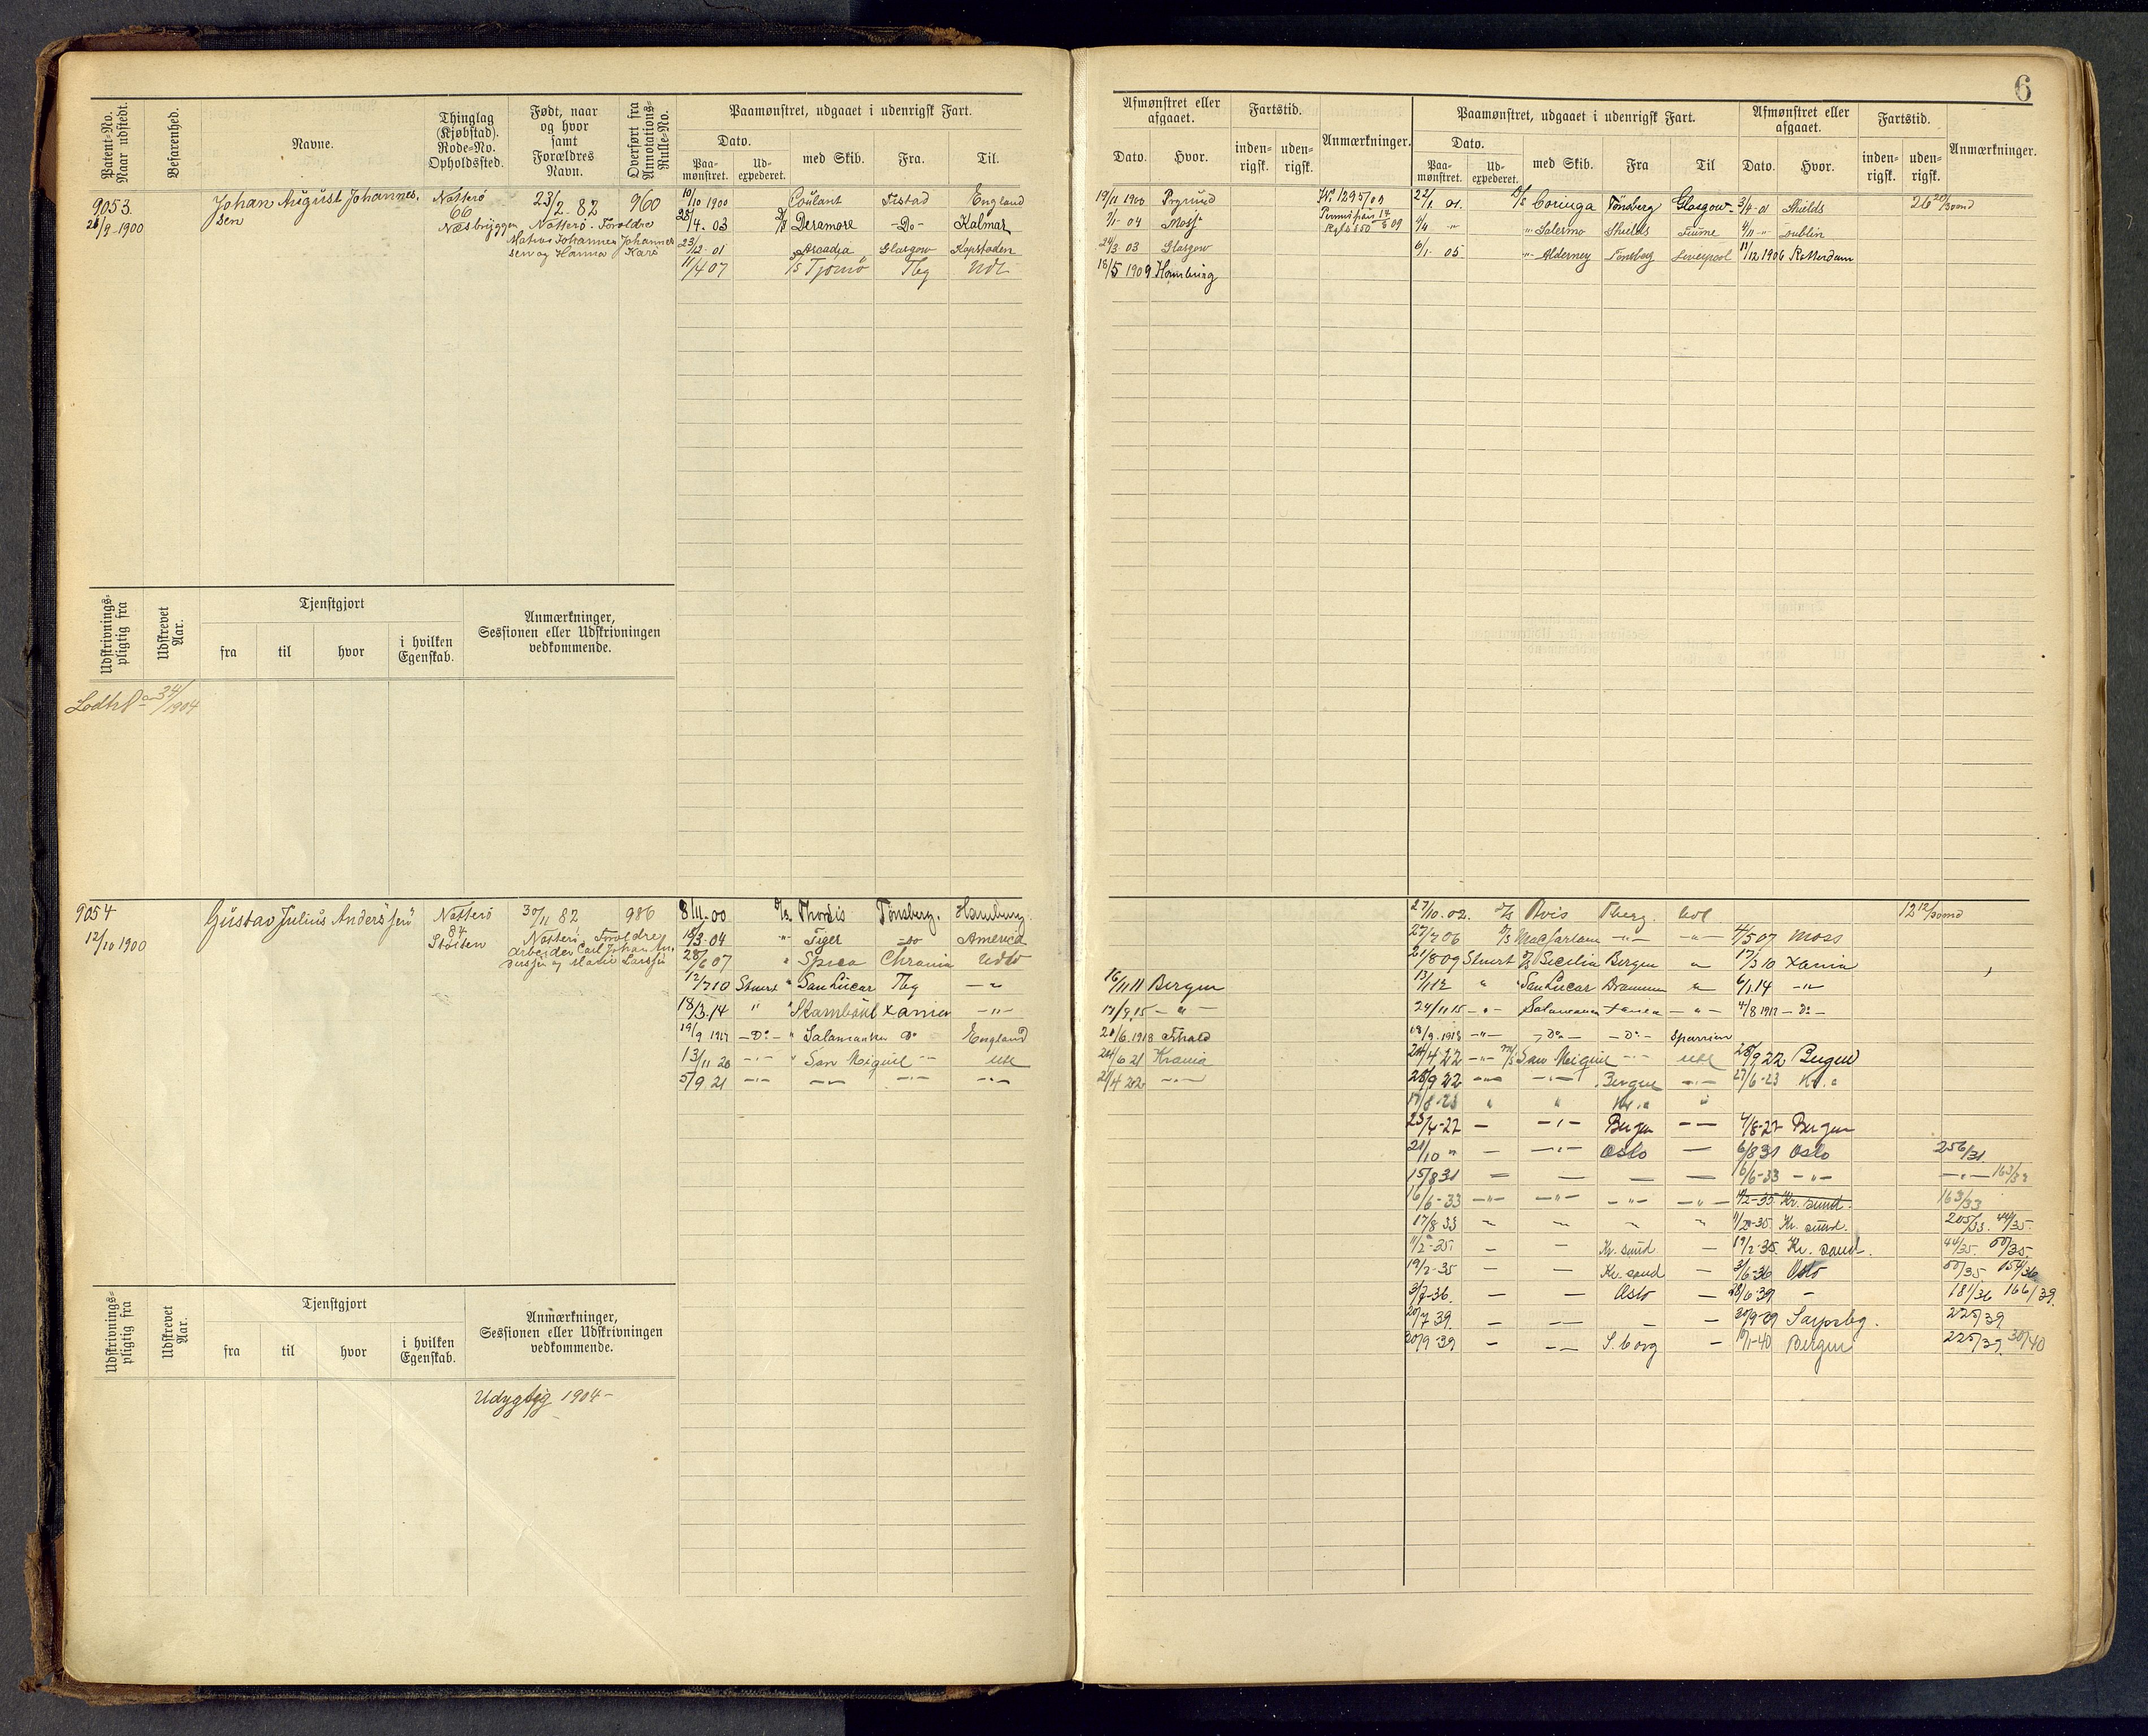 6
Patent-No. Naar udstedt.
Befarenhed.
Navne.
Thinglag (Kjøbstad). Rode-No. Opholdssted.
Født, naar og hvor samt Forældres Navn.
Overført fra Annotations-Rulle-No.
Paamønstret, udgaaet i udenrigsk Fart.
Dato.
Paa-mønstret.
Ud-expederet.
med Skib.
Fra.
Til.
Afmønstret eller afgaaet.
Dato.
Hvor.
Fartstid.
inden-rigsk.
uden-rigsk.
Anmærkninger.
Paamønstret, udgaaet i udenrigsk Fart.
Dato.
Paa-mønstret.
Ud-expederet.
med Skib.
Fra
Til
Afmønstret eller afgaaet.
Dato.
Hvor.
Fartstid.
inden-rigsk.
uden-rigsk.
Anmærkninger.
9053.
26/9-1900
Johan August Johannes.
sen
Nøtterø
66
Næsbryggen
23/2-82
Nøtterø. Foroldre
Johannes
sen og Hanna
960
10/10 1900 Coulant Fistad England
28/4-03 Deramore -Do- Kalmar
23/12-01 Arcadia Glasgow Kapstaden
11/4 07 Tjømø Tbg Udl
19/11 1900
7/1-04 Moss
24/3 03 Glasgow
18/5 1909 Hamburg
No 1295/09
22/1 01. Coringa Tønsberg Glasgow- 3/4-01 Shields
4/4 -"- " Salerno Shields Fiume 4/11 -"- Dublin
6/1-05 -"- Alderney Tønsberg Liverpool 11/12 1906 Rotterdam
Udskrivnings-pligtig fra
Udskrevet Aar.
Tjenstgjort
fra
til
hvor
i hvilken Egenskab.
Anmærkninger, Sessionen eller Udskrivningen vedkommende.
1904
9054
12/10 1900
Gustav Julius Anderssen
Nøtterø
84
Stoiten
30/11 82
Nøtterø. Foroldre
Arbeider Carl Johan An-
derssen og Marie Larssen
986
8/11-00 Thordis Tønsberg. Hamburg.
18/3-04 " Tiger -do America
28/6 07 " Spica Chrania Udl
12/7 10 Stuert " San Lucar Tbg -"-
18/3.14 " " Stamboul Xania -"-
19/9 1917 -Do- " Salamanka Do England
13/11 20 -"- " San Miguel -"- Utl
5/9 21 -"- -"- -"- -"-
16/11 11 Bergen
17/9.15 -"-
20/6.1918 Fthald
24/6 21 Krania
27/10-02. Avis Tberg. Udl
27/7 06 Macfarlane -"- -"- 4/5 07 Moss
21/8 09 Stuert Sicilia Bergen " 17/3 10 Xania
13/1 12 " San Lucar Drammen " 6/1.14 -"-
24/11 15 -"- Salamanca Xania -"- 4/8 1917 -Do-
18/9.1918 -"- -Do- -Do- Spanien
24/4 22 -"- San Miguel -"- Utl 28/9 22 Bergen
28/9 22 -"- -"- Bergen -"- 27/6-23 Kr.a
17/8-23 " " Kr.a "
23/4-27 - -"- Bergen - 4/8-27 Bergen
21/10 " - -"- Oslo - 6/8 31 Oslo 256/31.
15/8 31 - - - - 16/6-33 -"- -"- 163/33
16/6-33 -"- -"- -"- -"- 11/2-35. Kr. sund. 163/33
17/8 33 " - " " 11/2-35. Kr. sund. 205/33. 44/35.
11/2-35. - - Kr. sund - 19/2-35. Kr. sund. 44/35. 50/35.
19/2-35 - - Kr. sund - 3/6-36 Oslo 50/35 154/36
3/7-36. - - Oslo - 28/6-39. - 181/36 166/39.
20/7 39. - - - - 20/9-39 Sarpsbg. 225/39
20/9-39 - - S.borg - 10/1-40 Bergen 225/39. 30/40
Udskrivnings-pligtig fra
Udskrevet Aar.
Tjenstgjort
fra
til
hvor
i hvilken Egenskab.
Anmærkninger, Sessionen eller Udskrivningen vedkommende.
Udygtig 1904-